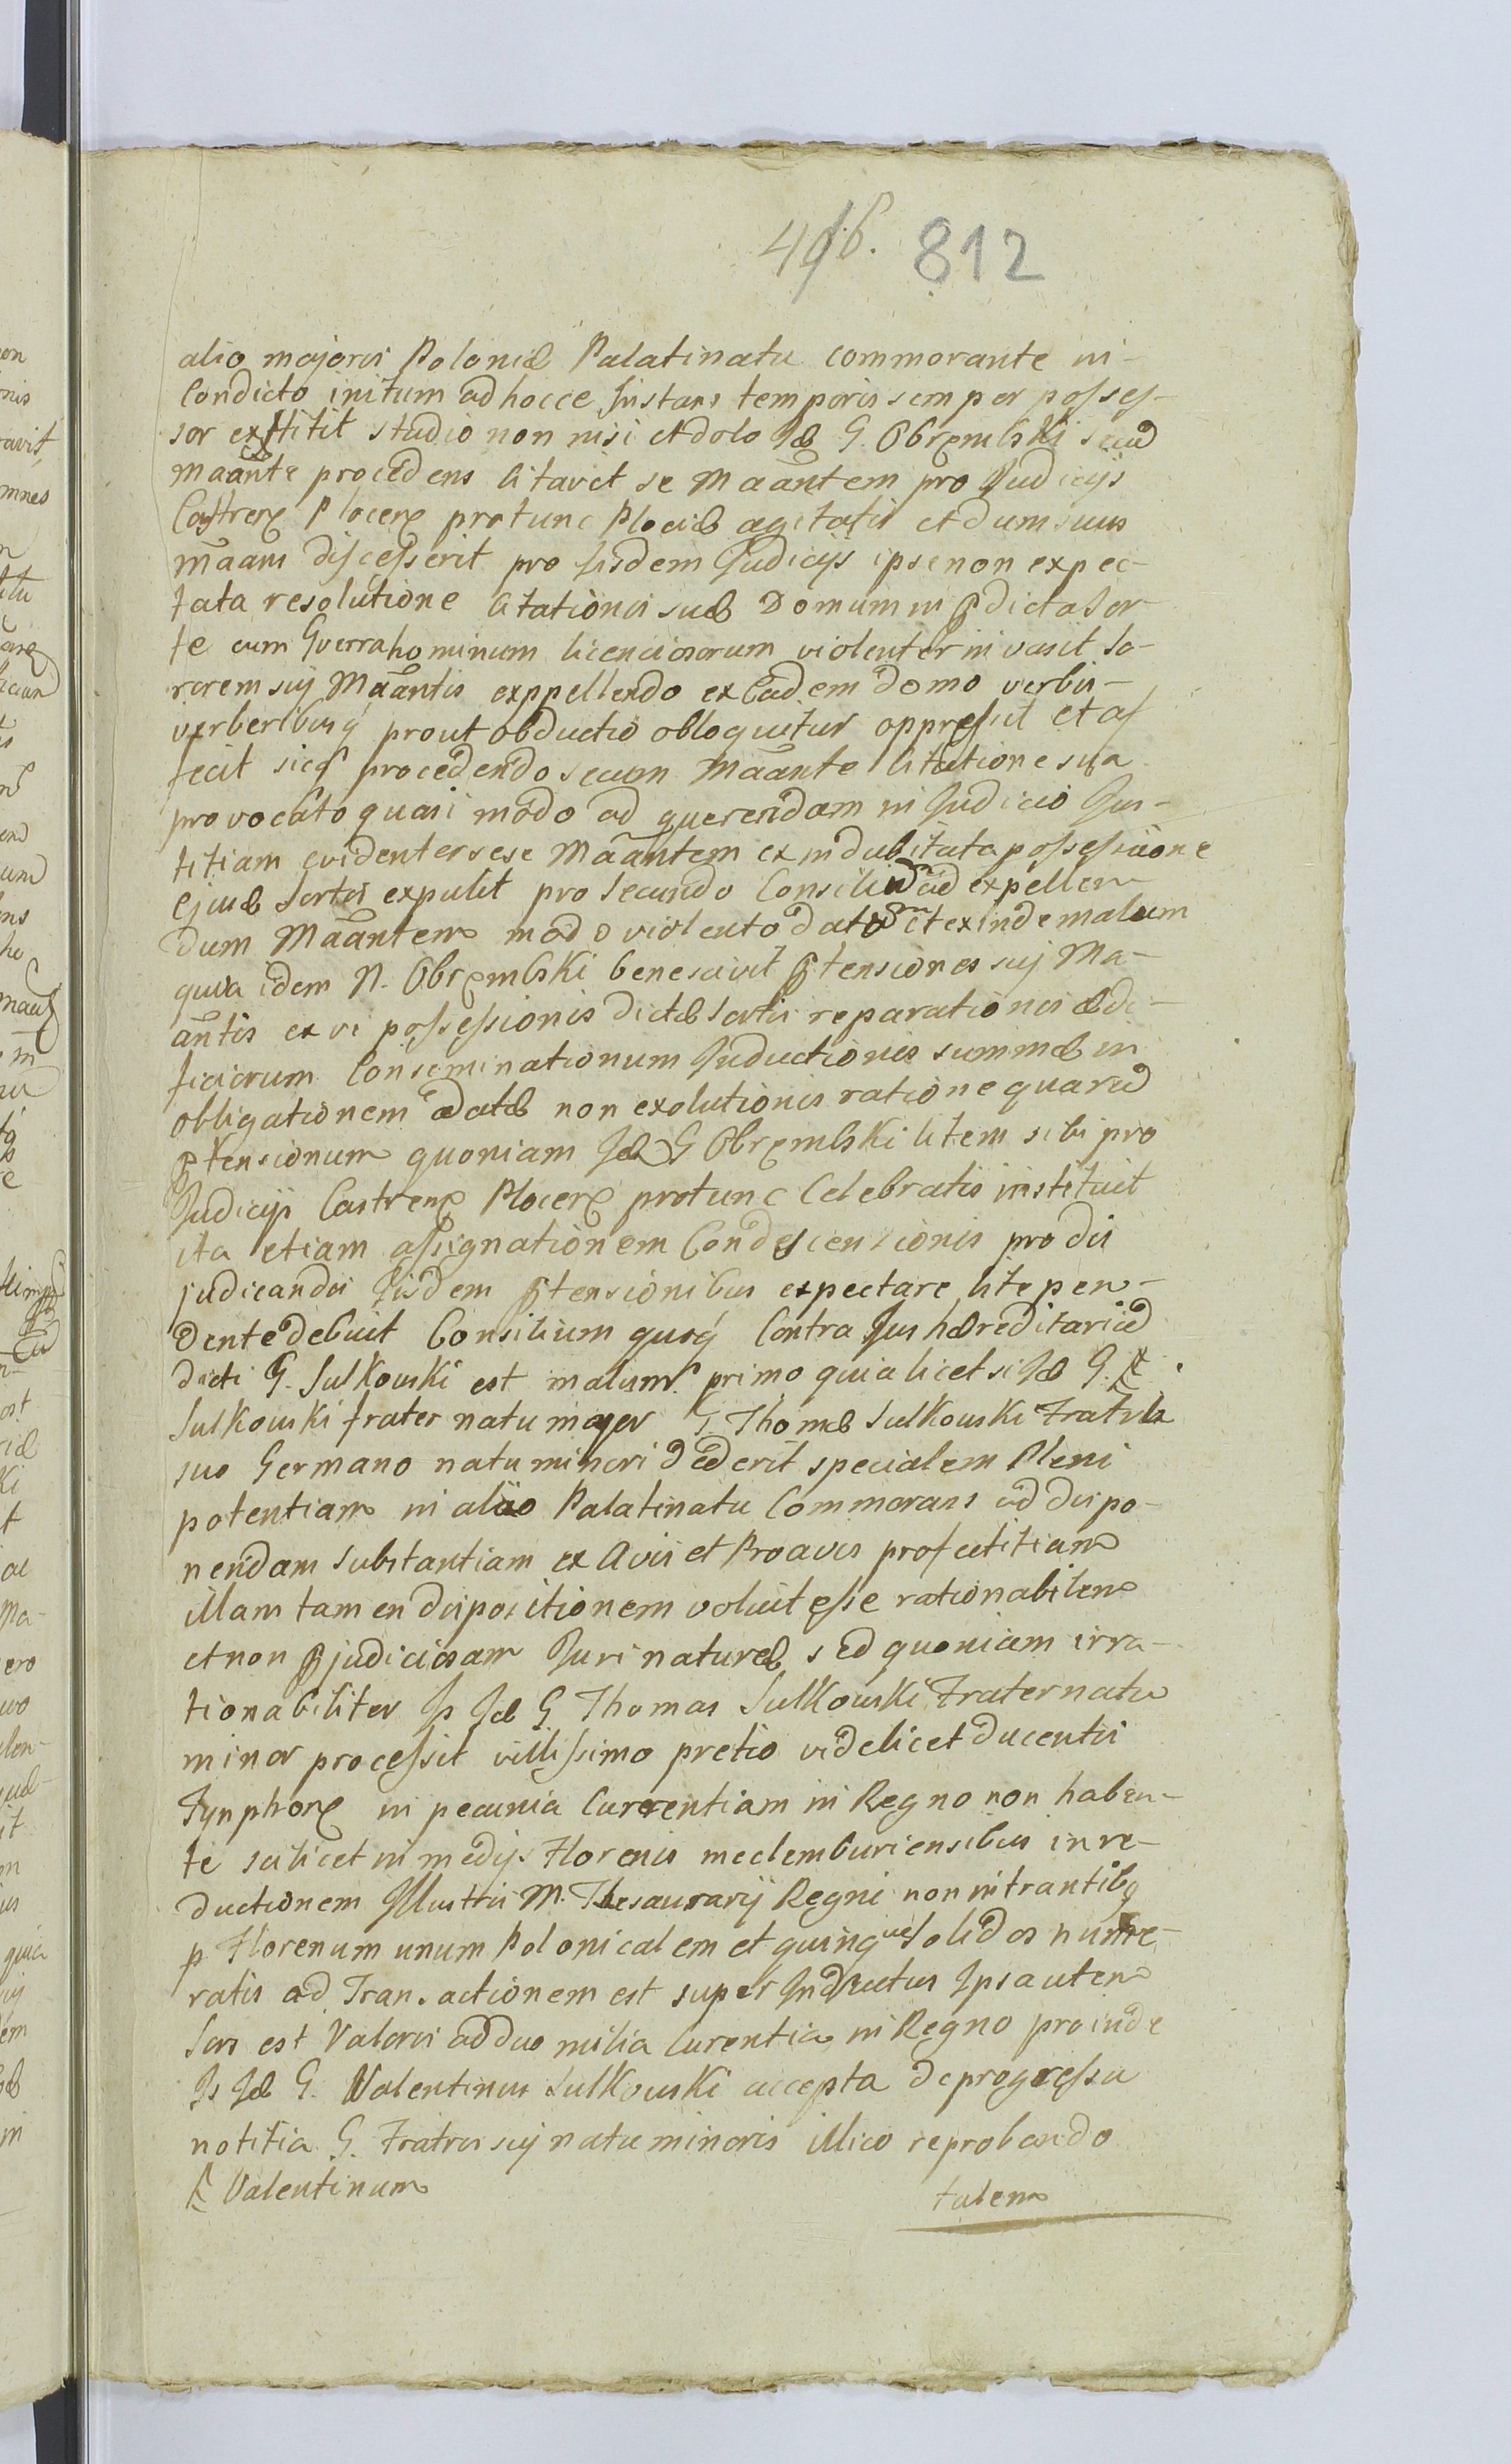 496. 812
alio majoris Poloniæ Palatinatu commorante in-
Condicto initum ad hocce Instans temporis semper posses-
sor exstitit studio non nisi et dolo Idæ G. Obrembski secũ
Maãnte procedens Citavit se Maãntem pro Judicijs
Castren Plocen protunc Plociæ agitatis et dum suus
maãns discesserit pro iisdem Judicijs ipse non expec-
tata resolutione Citationis suæ Domum in p̃dicta Sor-
te cum Gverra hominum licenciosorum violenter invasit So-
rorem sui Maãntis exppellendo ex Eadem domo verbis-
verberibusq prout obductio obloquitur oppressit et af
fecit sicq procedendo secum Maãnte Citatione sua
provocato quasi modo ad querendam in Judicio Jus-
titiam evidenter sese Maãntem ex indubitata possessione
Ejusdæ Sortis expulit pro Secundo Consiliũ ad expellen-
dum Maãntem modo violento datum et exinde malum
quia idem N. Obrembski bene scivit p̃tensiones sui Ma-
ãntis ex vi possessionis dictæ Sortis reparationis ædi-
ficiorum Conseminationum Inductionis summæ in
obligationem datæ non exolutionis ratione quarũ
p̃tensionum quoniam Idæ G Obrembski litem sibi pro
Judicijs Castren Plocen protunc Celebratis instituit
ita etiam assignationem Condescensionis pro dis
judicandis Iisdem p̃tensionibus expectare lite pen-
dente debuit Consilium quoq Contra Jus hæreditariũ
dicti G. Sulkowski est malum primo quia licet si Idæ G.
Sulkowski frater natu major G. Thomæ Sulkowski Fratri
suo Germano natu minori dederit specialem Pleni
potentiam in alio Palatinatu Commorans ad dispo-
nendam Substantiam ex Avis et Proavis profectitiam
illam tamen dispositionem voluit esse rationabilem
et non p̃judiciosam Juri naturæ sed quoniam irra-
tionabiliter Is Idæ G Thomas Sulkowski Frater natu
minor processit villissimo pretio videlicet ducentis
Tynphon in pecunia Currentiam in Regno non haben-
te scilicet in medijs Florenis meclemburiensibus in re-
ductionem Illustris M. Thesaurarij Regni non intrantibq
p Florenum unum Polonicalem et quinque Solidos nume-
ratis ad Transactionem est super Inductus Ipsa autem
Sors est Valoris ad duo milia Curentia in Regno proinde
Is Idæ G. Valentinus Sulkowski accepta de progressu
notitia G. Fratris sui natu minoris illico reprobando
Valentinum
talem